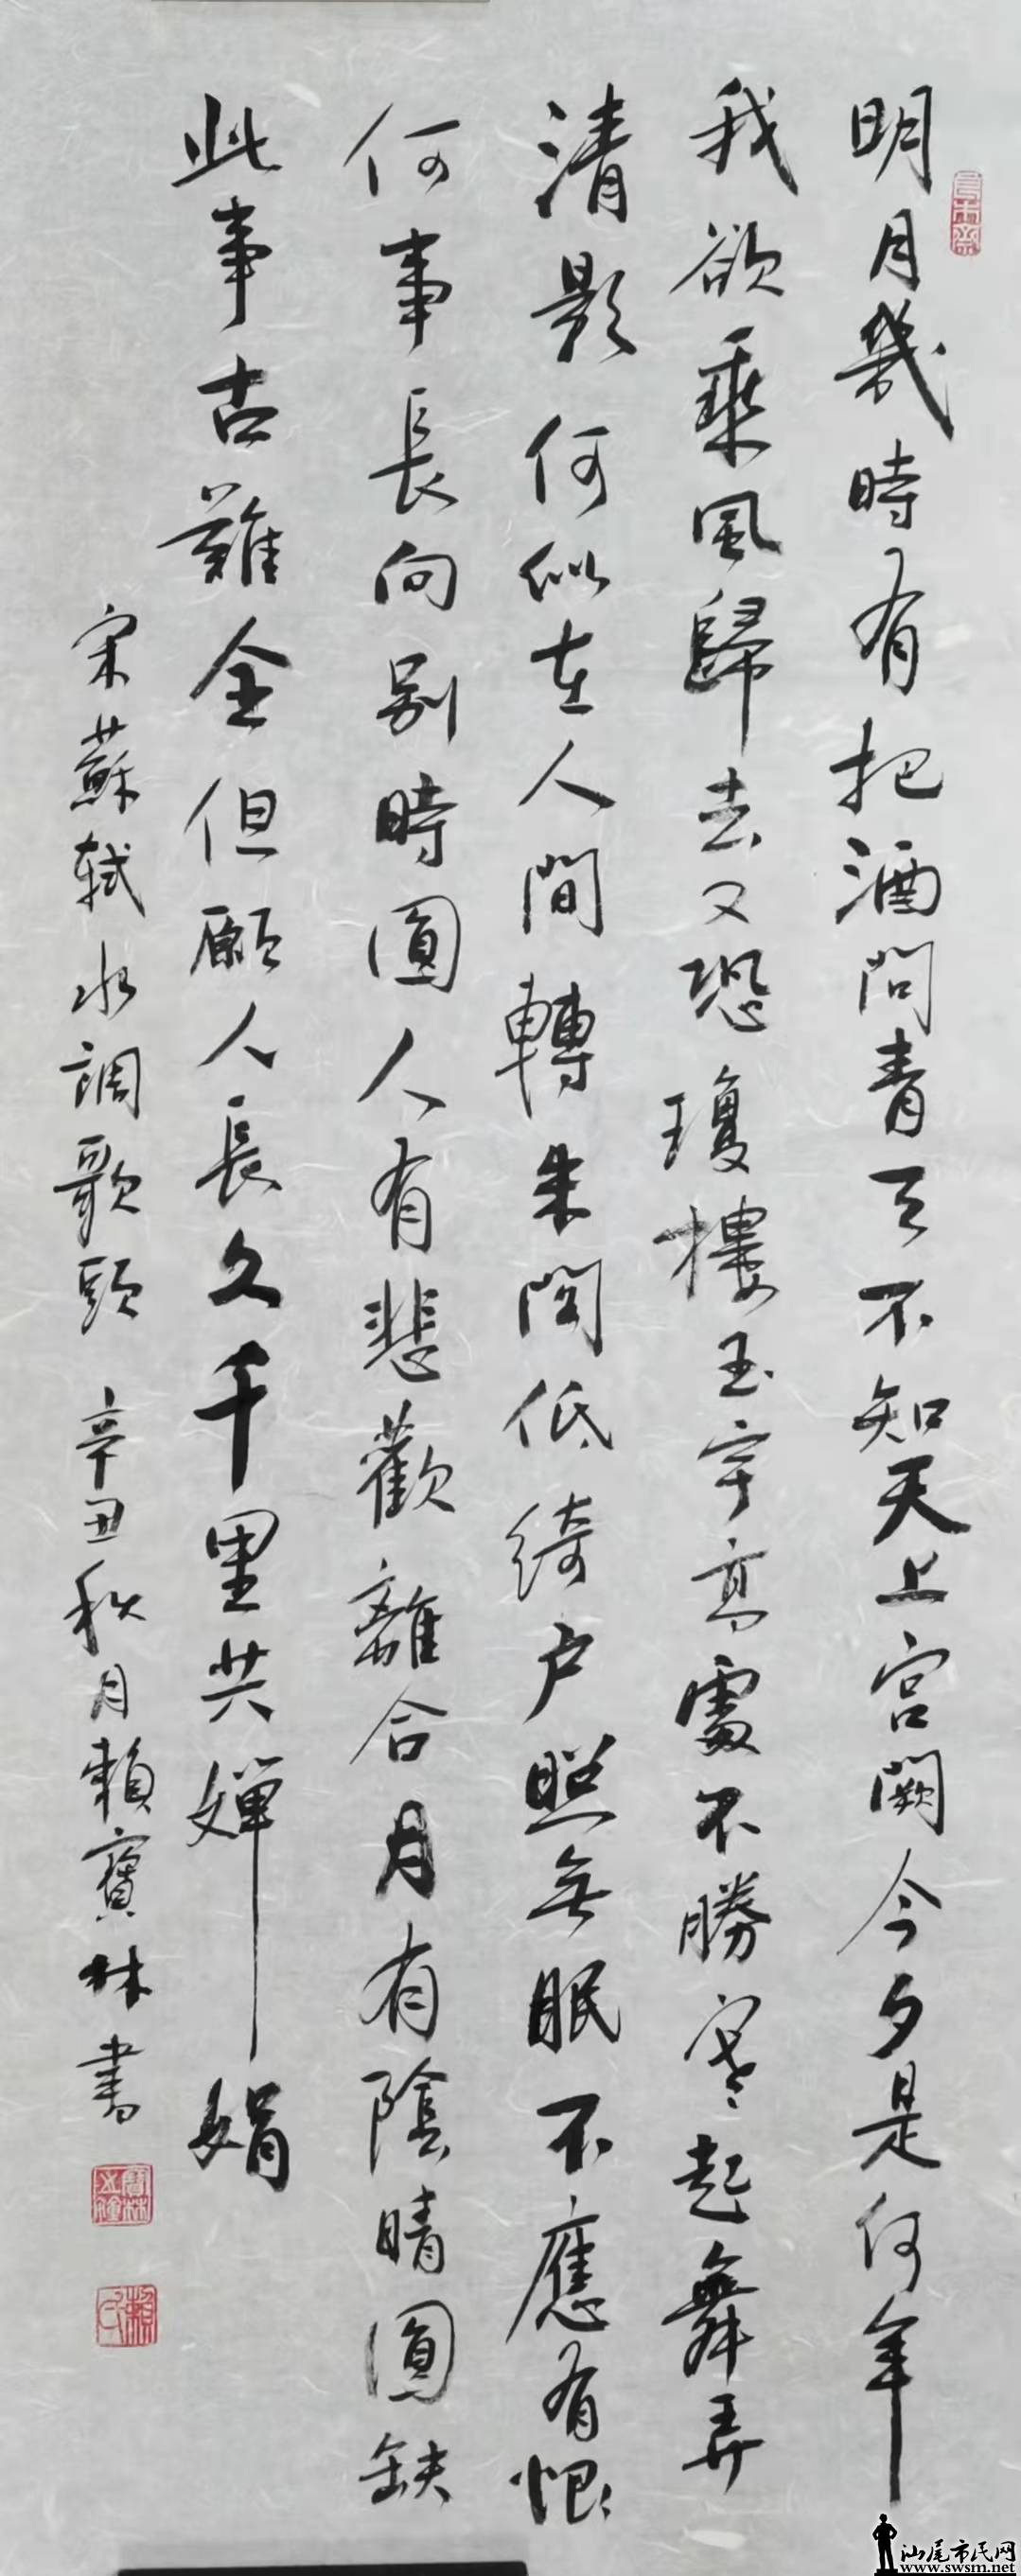 明月幾時有把酒問青天不知天上宮闕今夕是何年
我欲乘風歸去又恐瓊樓玉宇高處不勝寒起舞弄
清影何似在人間轉朱閣低綺户照無眠不應有恨
何事長向别時圓人有悲歡離合月有陰晴圓缺
此事古難全但願人長久千里共嬋娟
宋蘇軾水調歌頭 辛丑秋月賴寶林書
賴氏
汕尾市民网
www.swsm.net